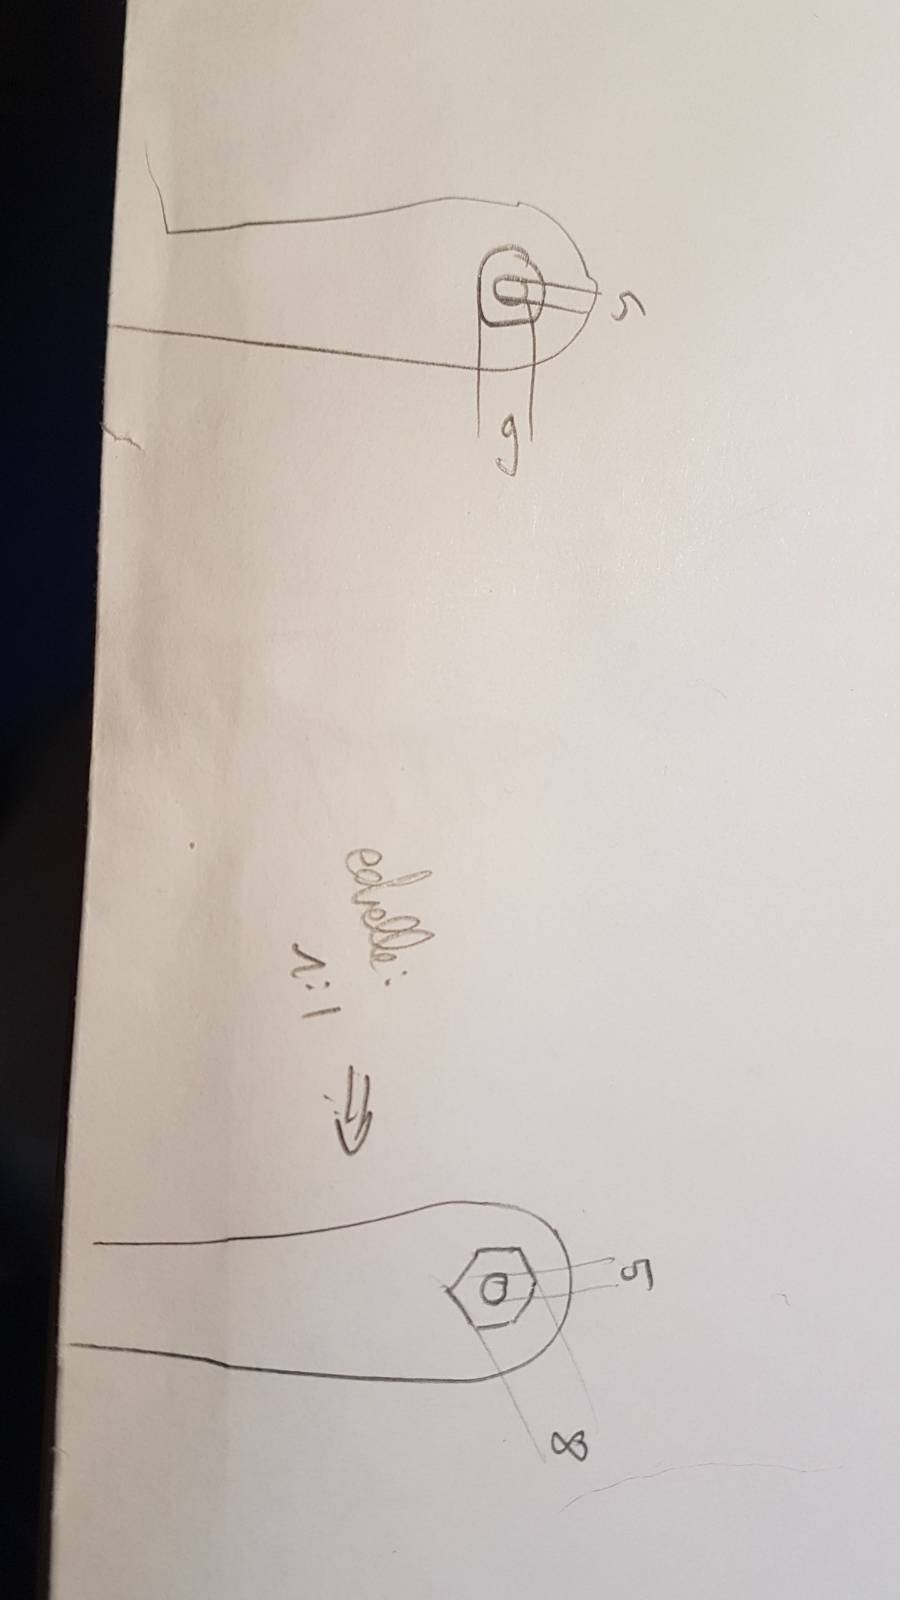 5
9
echelle:
1:1
5
8